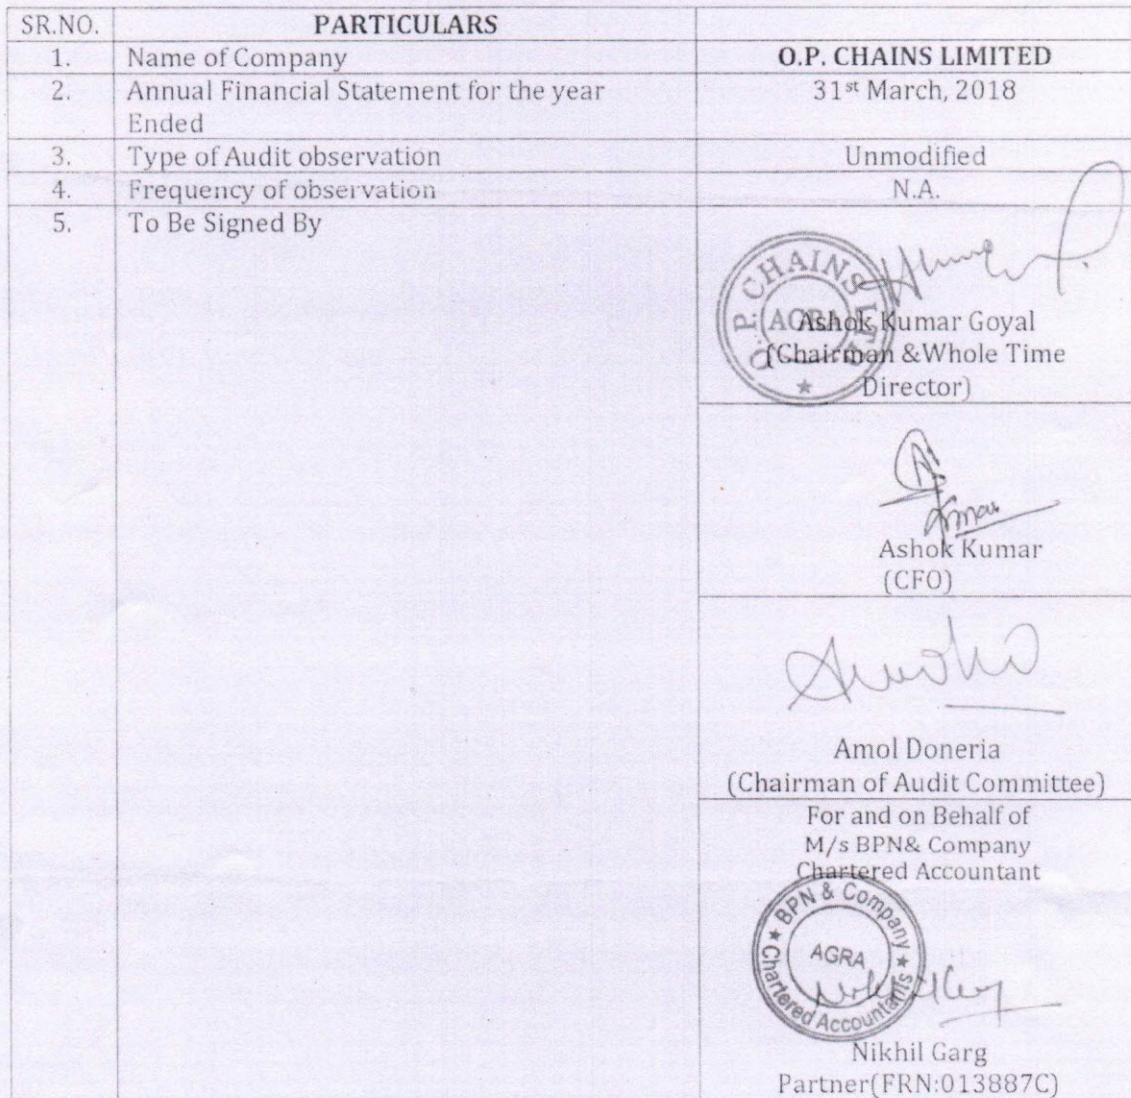 SR.NO. PARTICULARS
1. Name of Company O.P. CHAINS LIMITED
2. Annual Financial Statement for the year 31st March, 2018
Ended
3. Type of Audit observation Unmodified
4. Frequency of observation N.A.
5. To Be Signed By
O. P. CHAINS LTD
AGRA
Ashok Kumar Goyal
(Chairman &Whole Time
Director)
Ashok Kumar
(CFO)
Amol Doneria
(Chairman of Audit Committee)
For and on Behalf of
M/s BPN& Company
Chartered Accountant
BPN & Company
AGRA
Chartered Accountants
Nikhil Garg
Partner(FRN:013887C)